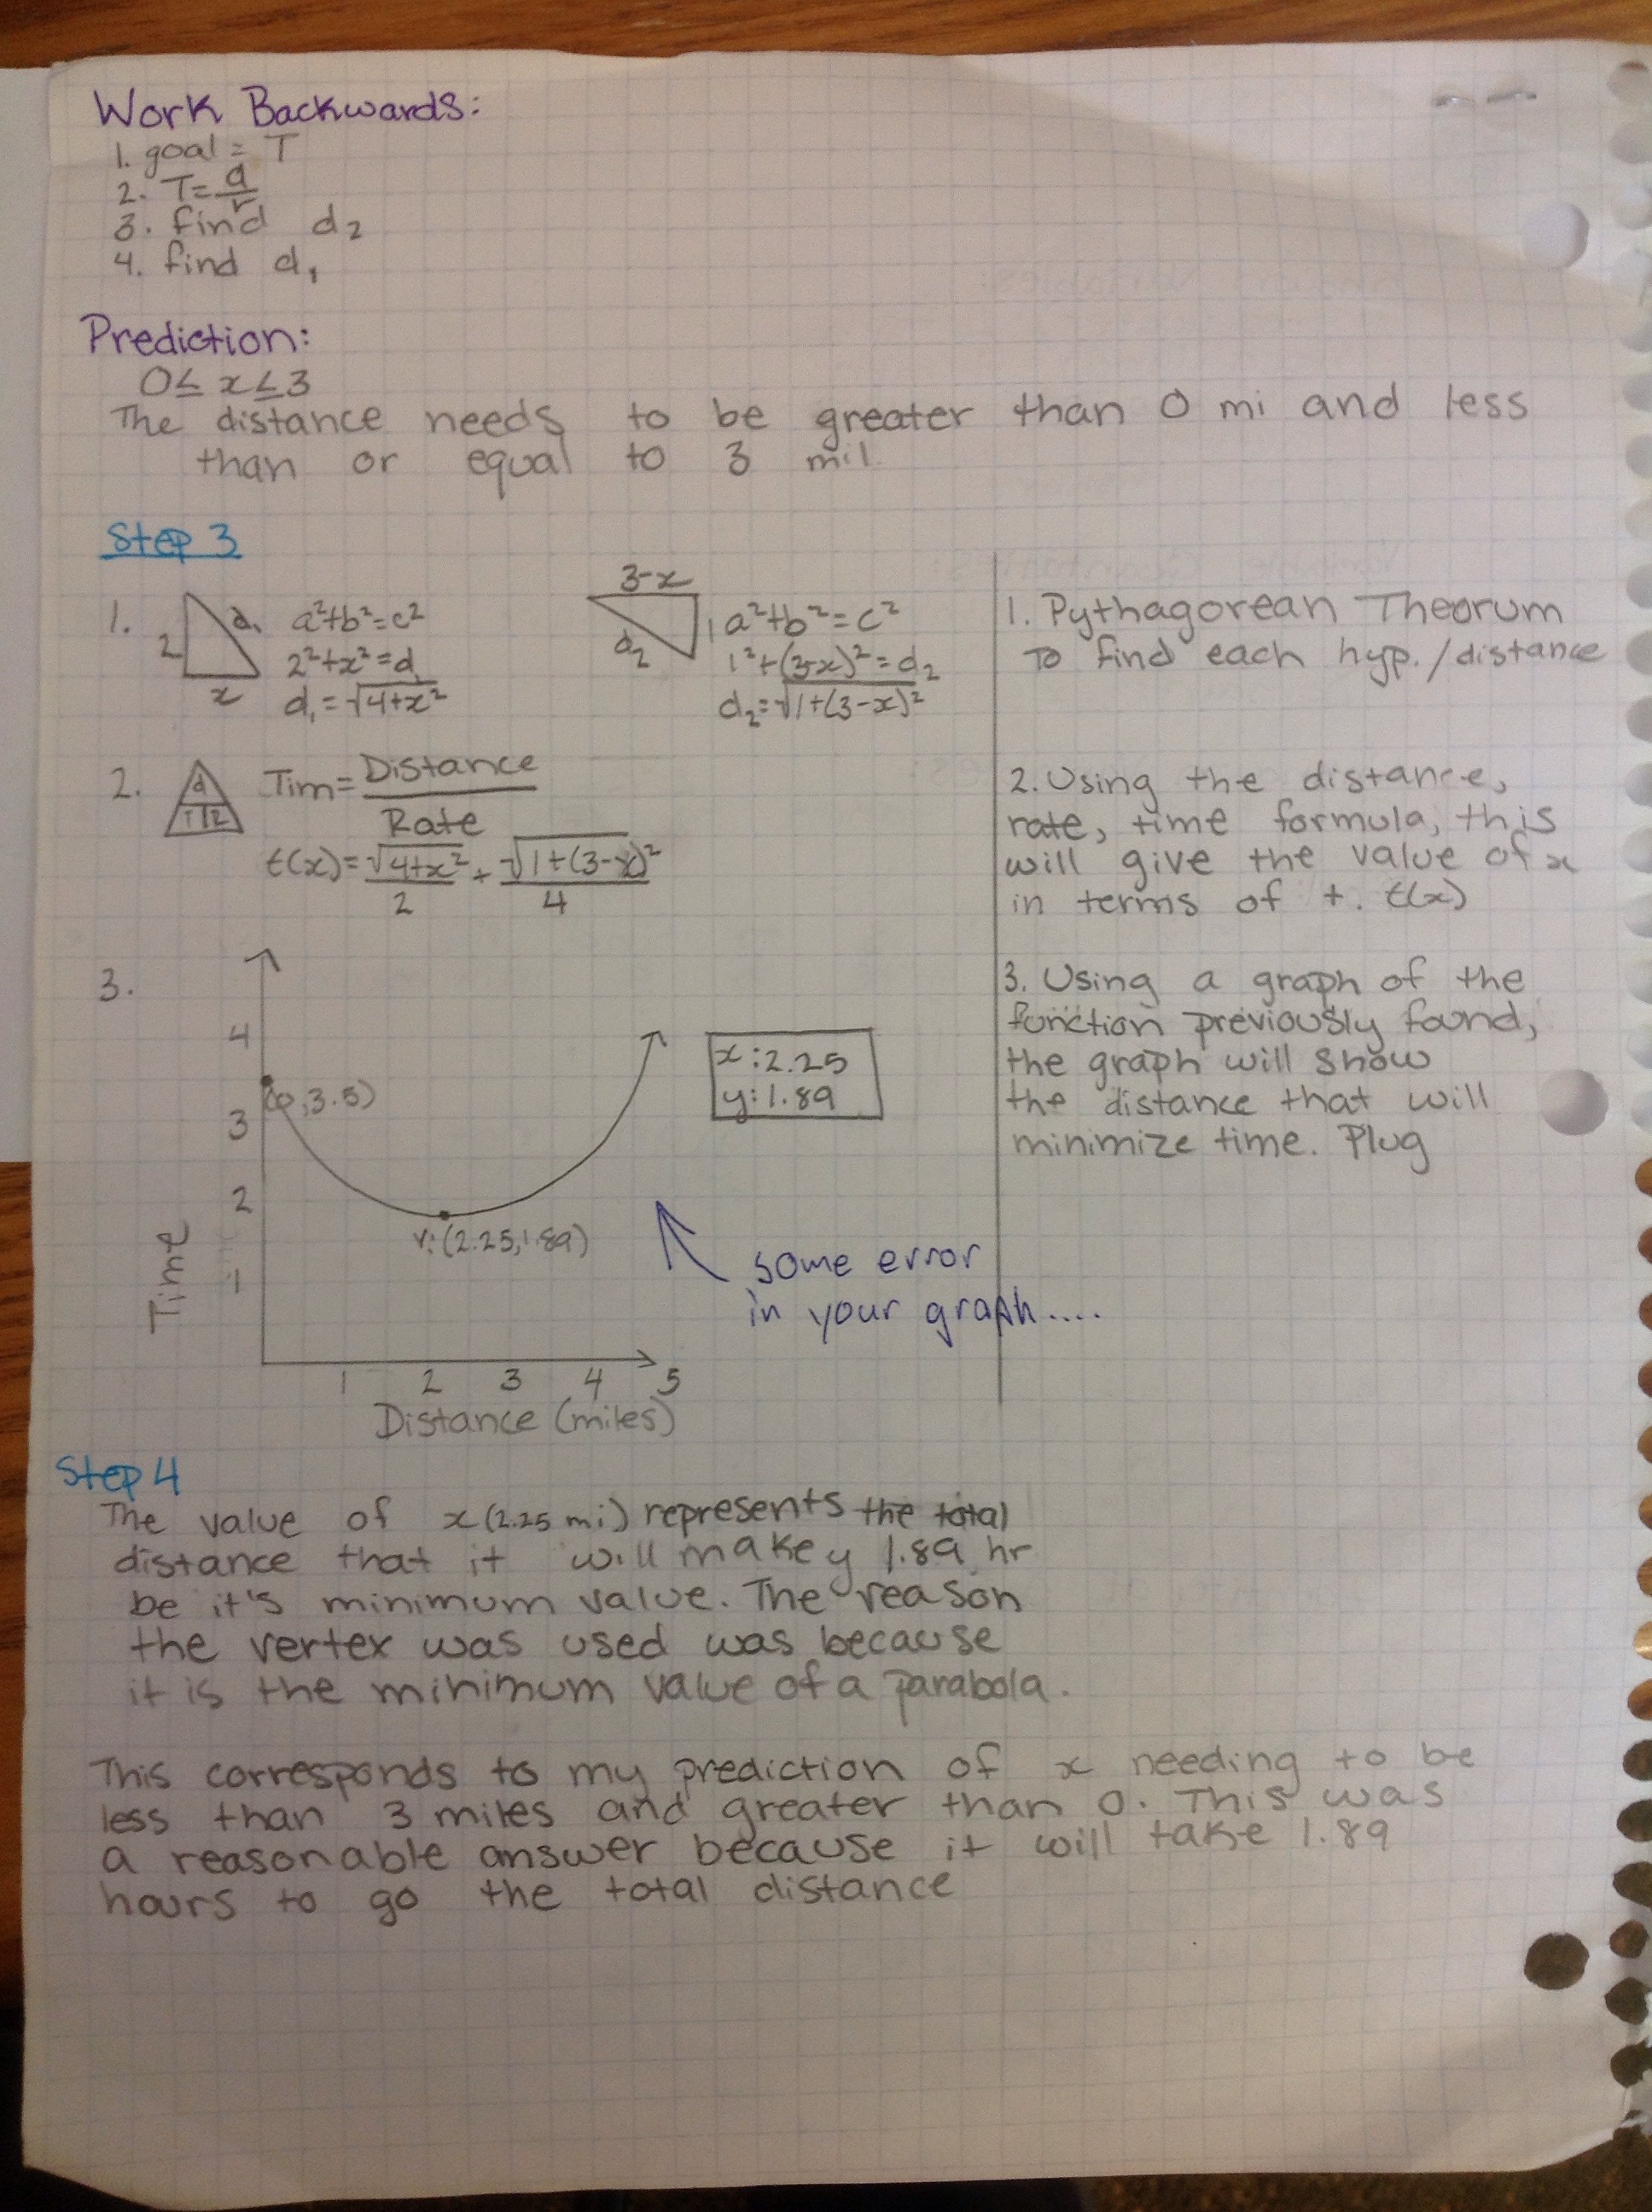 Work Backwards:
1. goal = T
2. T= d/r
3. find d₂
4. find d₁
Prediction:
0≤ x ≤3
The distance needs to be greater than 0 mi and less
than or equal to 3 mil.
Step 3
1.
2
d₁
x
a²+b²=c²
2²+x²=d₁
d₁=√4+x²
3-x
1
d₂
a²+b²=c²
1²+(3-x)²=d₂
d₂=√1+(3-x)²
1. Pythagorean Theorum
To find each hyp./distance
2.
d
Tim= Distance
Rate
t(x)= √4+x²/2 + √1+(3-x)²/4
2. Using the distance,
rate, time formula, this
will give the value of x
in terms of t. t(x)
3.
4
3
2
1
Time
(0,3.5)
v:(2.25,1.89)
x:2.25
y:1.89
1 2 3 4 5
Distance (miles)
some error
in your graph....
3. Using a graph of the
function previously found,
the graph will show
the distance that will
minimize time. Plug
Step 4
The value of x (2.25 mi) represents the total
distance that it will make y 1.89 hr
be it's minimum value. The reason
the vertex was used was because
it is the minimum value of a parabola.
This corresponds to my prediction of x needing to be
less than 3 miles and greater than 0. This was
a reasonable answer because it will take 1.89
hours to go the total distance